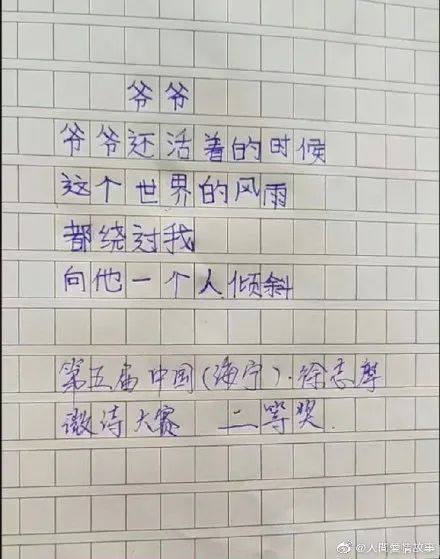 爷爷
爷爷还活着的时候
这个世界的风雨
都绕过我
向他一个人倾斜
第五届中国(海宁)·徐志摩
微诗大赛 二等奖
@人间爱情故事